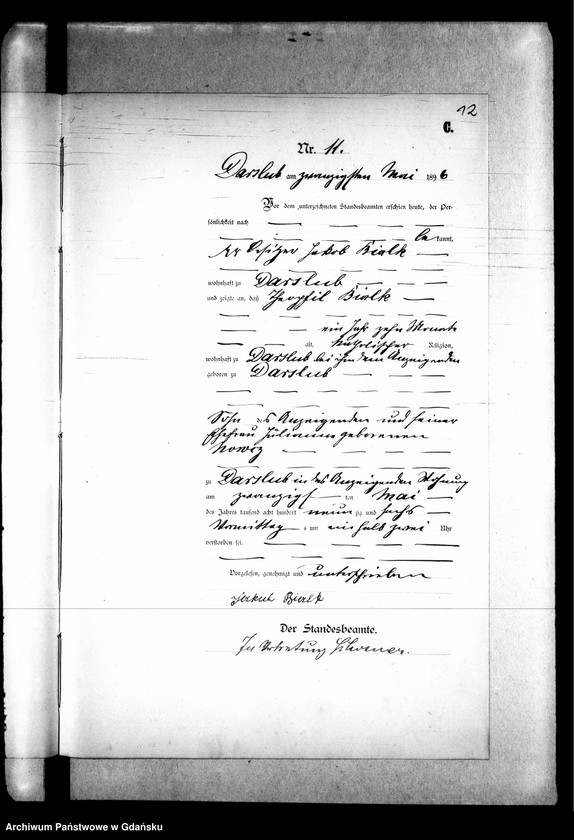 12
C.
Nr. 11.
Darslub am zwanzigsten Mai 1896
Vor dem unterzeichneten Standesbeamten erschien heute, der Per-
sönlichkeit nach
be kannt,
Besitzer Jakob Bialk
wohnhaft zu Darslub
und zeigte an, daß Theophil Bialk
ein Jahr zehn Monate
alt, katholischer Religion,
wohnhaft zu Darslub bei ihm dem Anzeigenden
geboren zu Darslub
Sohn des Anzeigenden und seiner
Ehefrau Julianna geborenen
zu Darslub in des Anzeigenden Wohnung
am zwanzigsten Mai
des Jahres tausend acht hundert neunzig und sechs
Vormittags um ein halb zwei Uhr
verstorben sei.
Vorgelesen, genehmigt und unterschrieben
Jakob Bialk
Der Standesbeamte.
In Vertretung
Archiwum Państwowe w Gdańsku